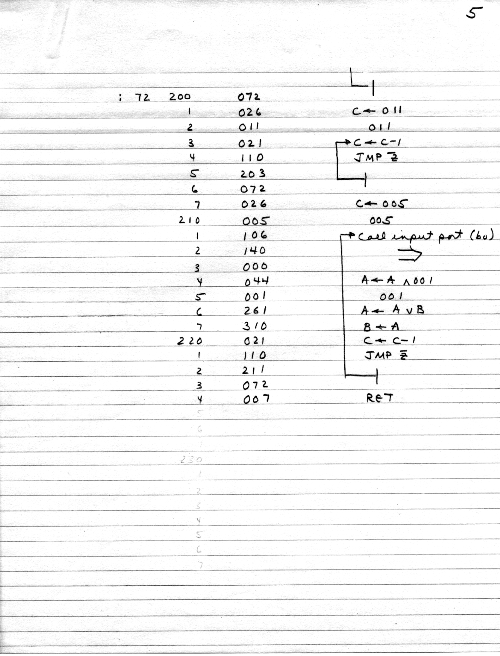 5
: 72 200 072
1 026 C ← 011
2 011 011
3 021 C ← C-1
4 110 JMP z̄
5 203
6 072
7 026 C ← 005
210 005 005
1 106 Call input port (bu)
2 140 ⇒
3 000
4 044 A ← A ∧ 001
5 001 001
6 261 A ← A ∨ B
7 310 B ← A
220 021 C ← C-1
1 110 JMP z̄
2 211
3 072
4 007 RET
5
6
230
1
2
3
4
5
6
7